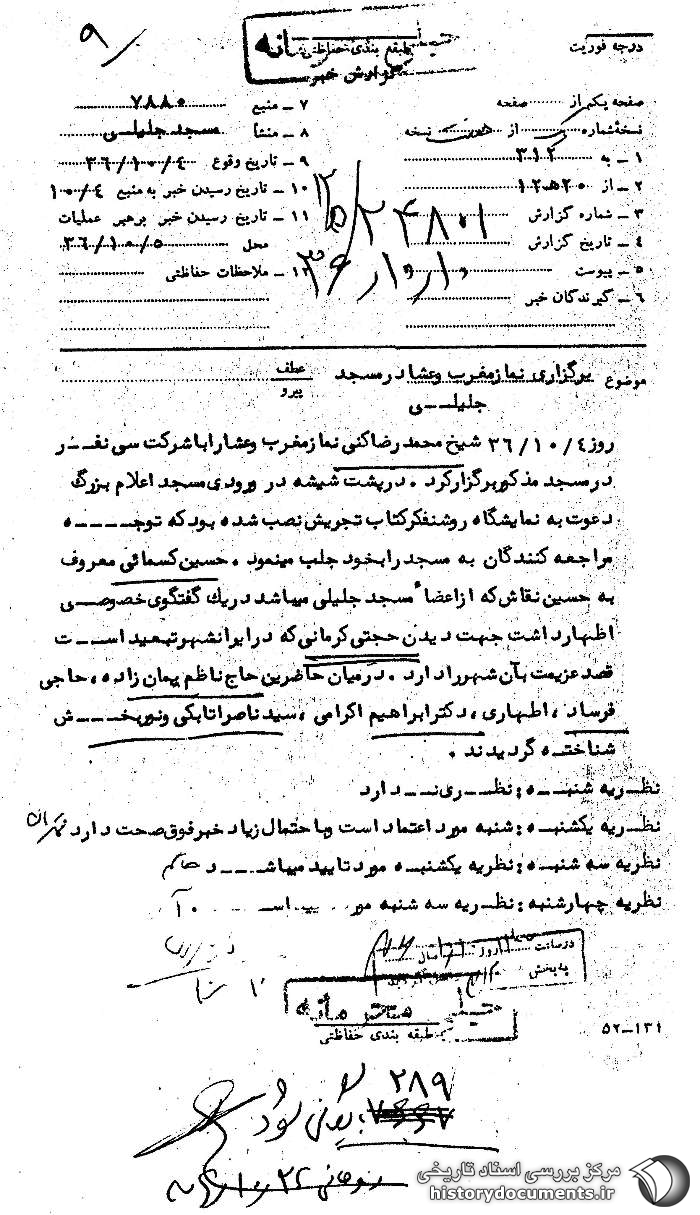 ۹
خیلی محرمانه
طبقه بندی حفاظتی
گزارش خبر
درجه فوریت
صفحه یکم از صفحه
نسخهٔ شماره از نسخه
۱ ـ به ۳۱۲
۲ ـ از ۲۰ ه‍ ۱۲
۳ ـ شماره گزارش ۲۴۸۰۱
۴ ـ تاریخ گزارش
۵ ـ پیوست
۶ ـ گیرندگان خبر
۷ ـ منبع ۷۸۸۰
۸ ـ منشأ مسجد جلیلــی
۹ ـ تاریخ وقوع ۳۶/۱۰/۴
۱۰ ـ تاریخ رسیدن خبر به منبع ۱۰/۴
۱۱ ـ تاریخ رسیدن خبر برهبر عملیات
محل ۳۶/۱۰/۵
۱۲ ـ ملاحظات حفاظتی
موضوع برگزاری نمازمغرب وعشا درمسجد
جلیلـــی
عطف
پیرو
روز ۳۶/۱۰/۴ شیخ محمدرضاکنی نمازمغرب وعشارا باشرکت سی نفــر
درمسجد مذکوربرگزارکرد . درپشت شیشه در ورودی مسجد اعلام بزرگ
دعوت به نمایشگاه روشنفکرکتاب تجریش نصب شده بودکه توجــــه
مراجعه کنندگان به مسجد رابخود جلب مینمود . حسین کسمائی معروف
به حسین نقاش که ازاعضاء مسجد جلیلی میباشد دریك گفتگوی خصوصــی
اظهارداشت جهت دیدن حجتی کرمانی که درایرانشهرتبعید اســـت
قصد عزیمت بآن شهررا دارد . درمیان حاضرین حاج ناظم پیمان زاده ، حاجی
فرساد ، اطهاری ، دکترابراهیم اکرامی ، سیدناصراتابکی ونوربخــــش
شناختــه گردیدند .
نظــریه شنبــه : نظــری نـــدارد
نظــریه یکشنبــه : شنبه مورد اعتماد است وبا حتمال زیاد خبرفوق صحت دارد
نظریه سه شنبــه : نظریه یکشنبــه مورد تایید میباشـــد
نظریه چهارشنبه : نظــریه سه شنبه
درساعت روز سال
به بخش
خیلی محرمانه
طبقه بندی حفاظتی
۵۲ــ۱۳۱
۲۸۹
مرکز بررسی اسناد تاریخی
historydocuments.ir